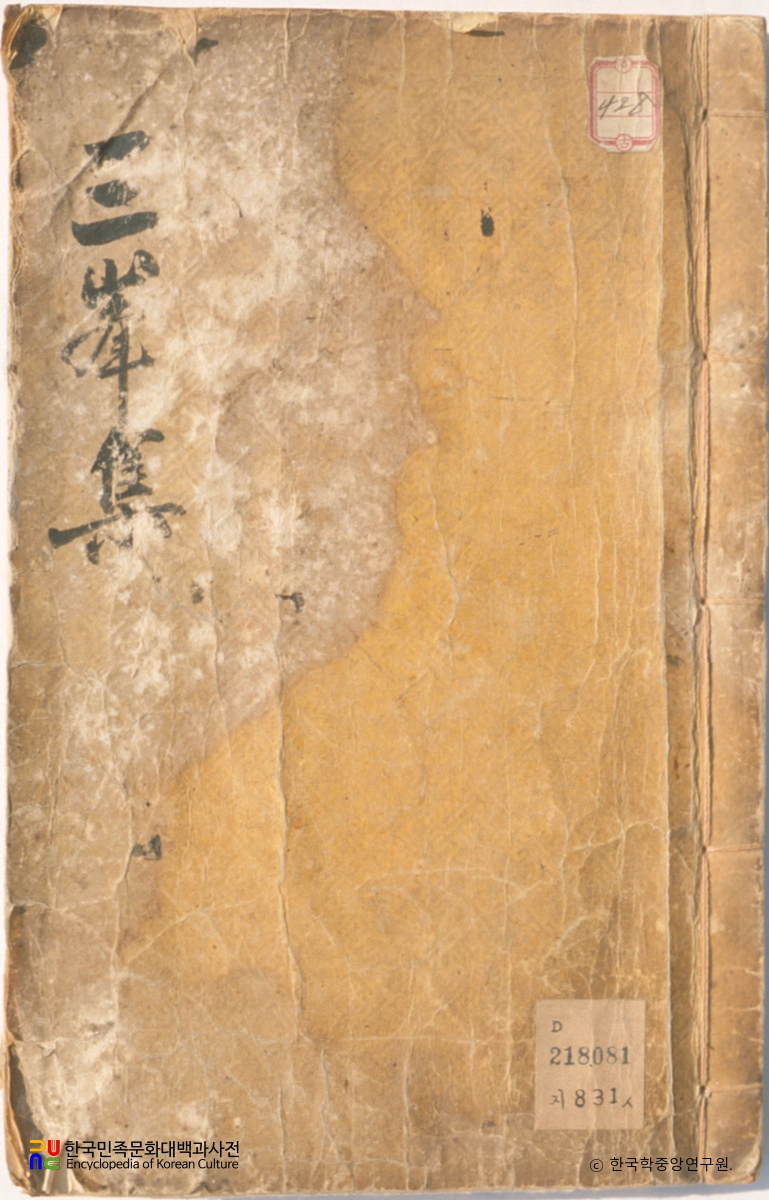 三峯集
428
D
218081
지831ㅅ
한국민족문화대백과사전
Encyclopedia of Korean Culture
© 한국학중앙연구원.